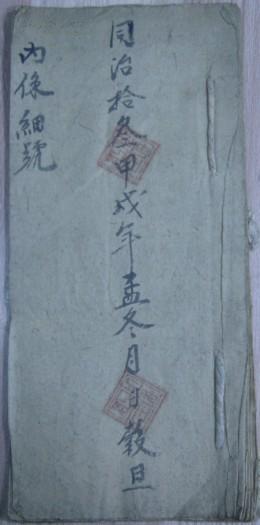 同治拾叁甲戌年孟冬月日穀旦
内係細號